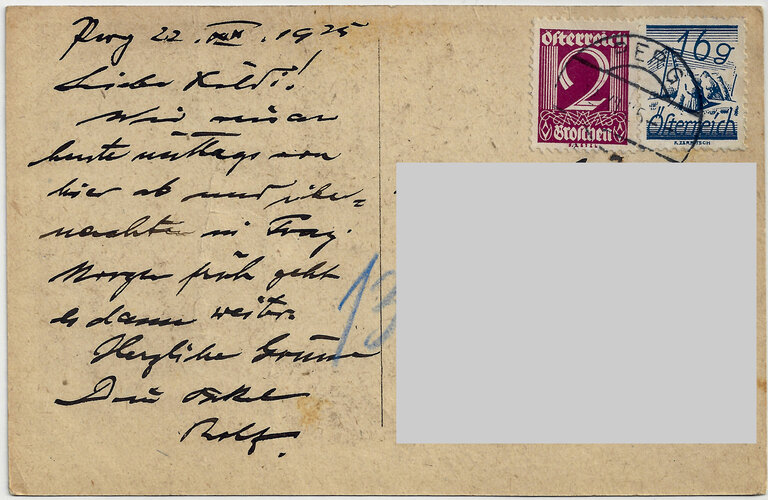 Perg 22. . 1925
Liebe Heldi!
Wir
heute mittags von
hier ab und über=
nachten in Prag.
Morgen früh geht
es dann weiter.
Herzliche Grüsse
Dein Onkel
Rolf.
13
Österreich
2
Groschen
16g
Österreich